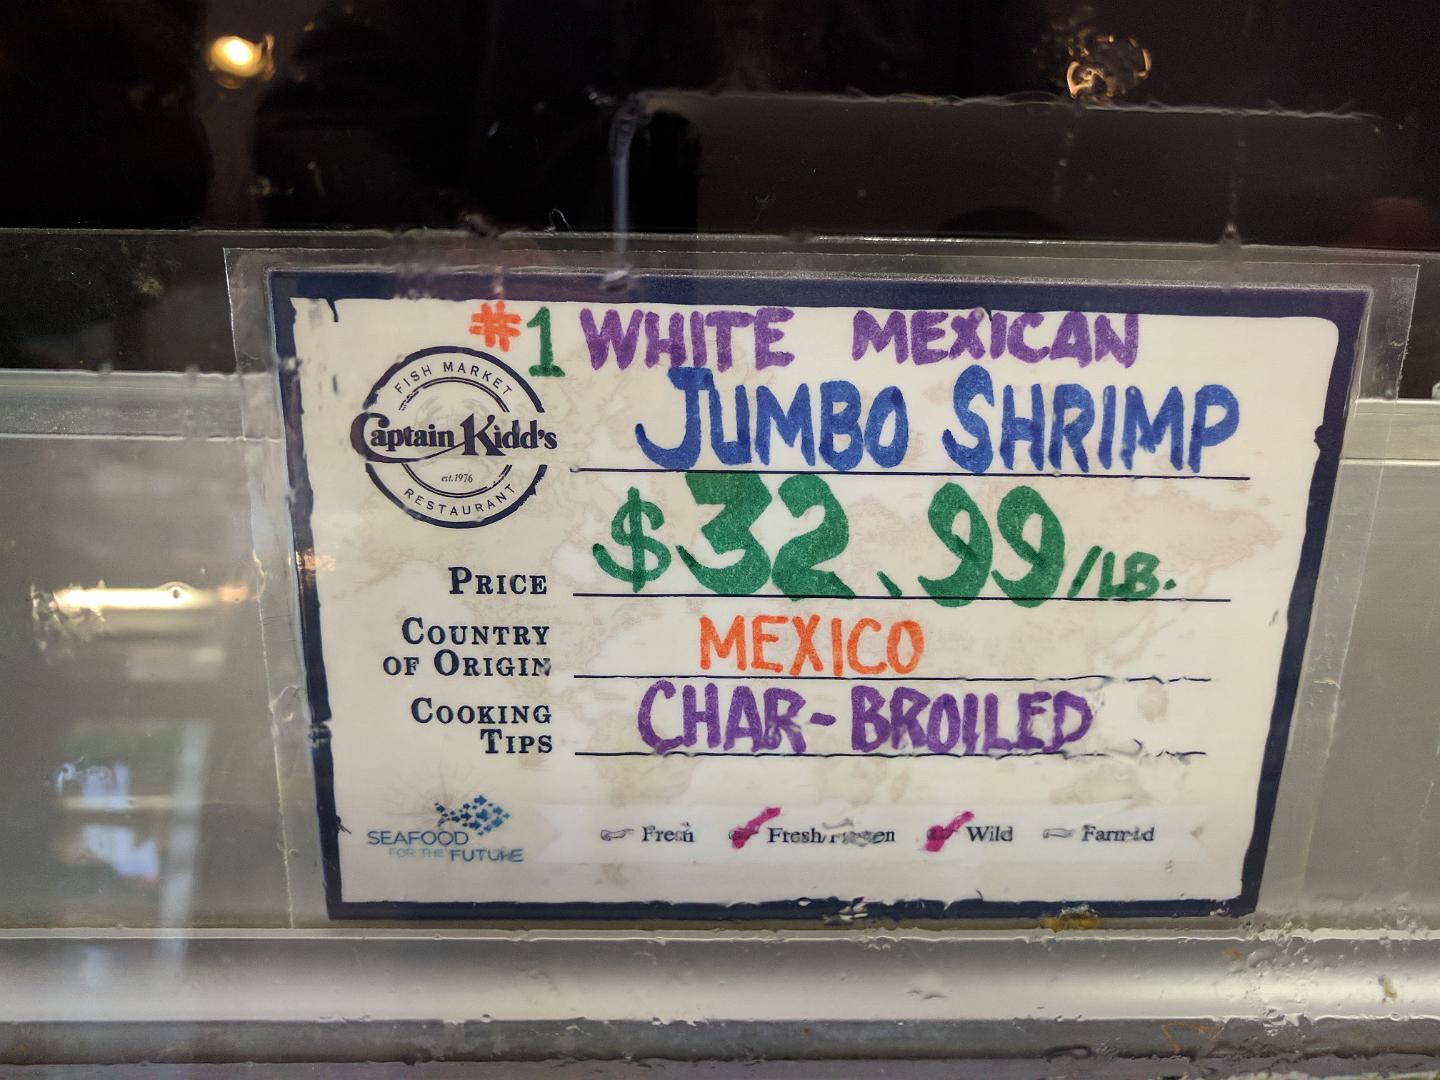 #1 WHITE MEXICAN
JUMBO SHRIMP
FISH MARKET
Captain Kidd's
est.1976
RESTAURANT
PRICE $32.99/LB.
COUNTRY OF ORIGIN MEXICO
COOKING TIPS CHAR-BROILED
SEAFOOD
FOR THE FUTURE
Fresh Fresh/Frozen Wild Farmed